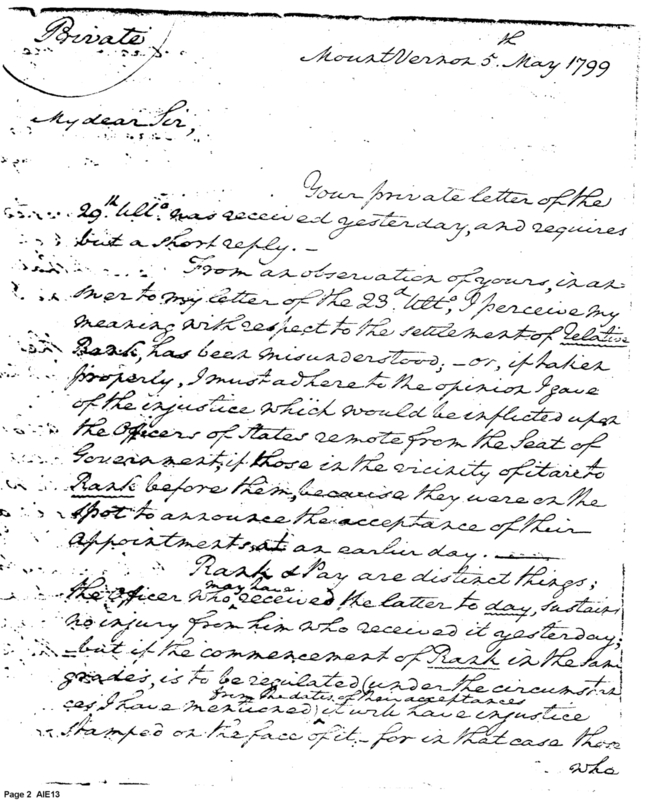 Private
Mount Vernon 5th May 1799
My dear Sir,
Your private letter of the
29th Ulto. was received yesterday, and requires
but a short reply. —
From an observation of yours, in an-
swer to my letter of the 23d Ulto, I perceive my
meaning with respect to the settlement of relative
Rank, has been misunderstood; — or, if taken
properly, I must adhere to the opinion I gave
of the injustice which would be inflicted upon
the Officers of States remote from the Seat of
Government, if those in the vicinity of it are to
Rank before them, because they were on the
spot to announce the acceptance of their
Appointments at an earlier day. —
Rank & Pay are distinct things;
may have
the Officer who received the latter to day, sustains
no injury from him who received it yesterday;
— but if the commencement of Rank in the same
grades, is to be regulated (under the circumstan
from the dates of their acceptances
ces I have mentioned) it will have injustice
stamped on the face of it. — for in that case those
who
Page 2 AIE13